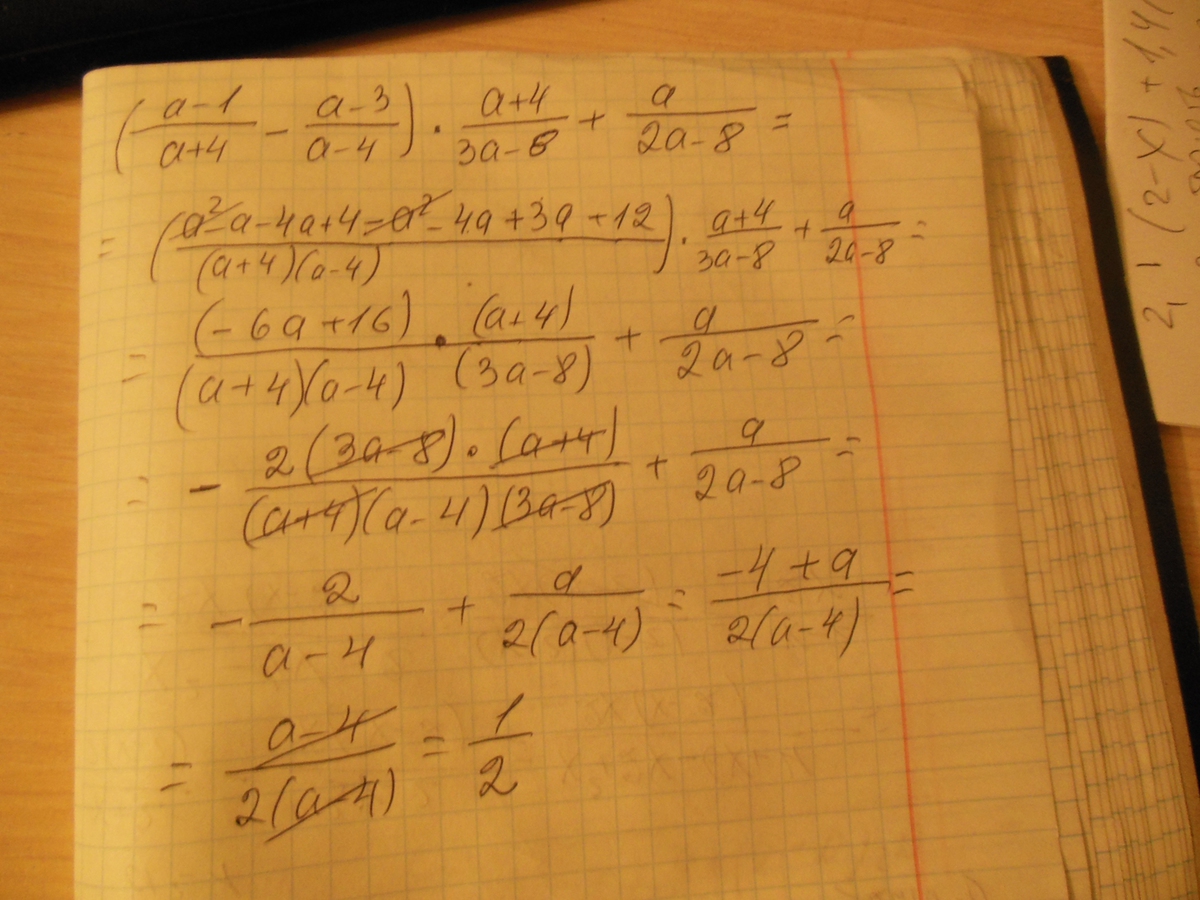 (a-1/a+4 - a-3/a-4) · a+4/3a-8 + a/2a-8 =
= (a²-a-4a+4-a²-4a+3a+12/(a+4)(a-4)) · a+4/3a-8 + a/2a-8 =
= (-6a+16)/(a+4)(a-4) · (a+4)/(3a-8) + a/2a-8 =
= - 2(3a-8)·(a+4)/(a+4)(a-4)(3a-8) + a/2a-8 =
= - 2/a-4 + a/2(a-4) = -4+a/2(a-4) =
= a-4/2(a-4) = 1/2
2, 1 (2-x) + 1,4